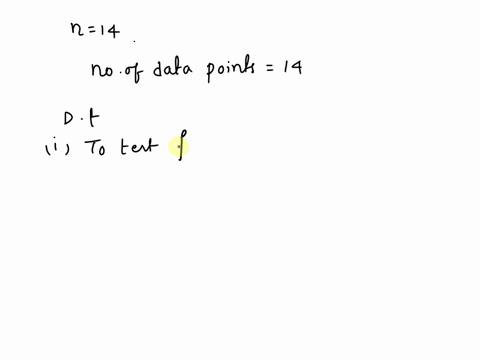 n=14
no. of data points = 14
D.f
(i) To test f